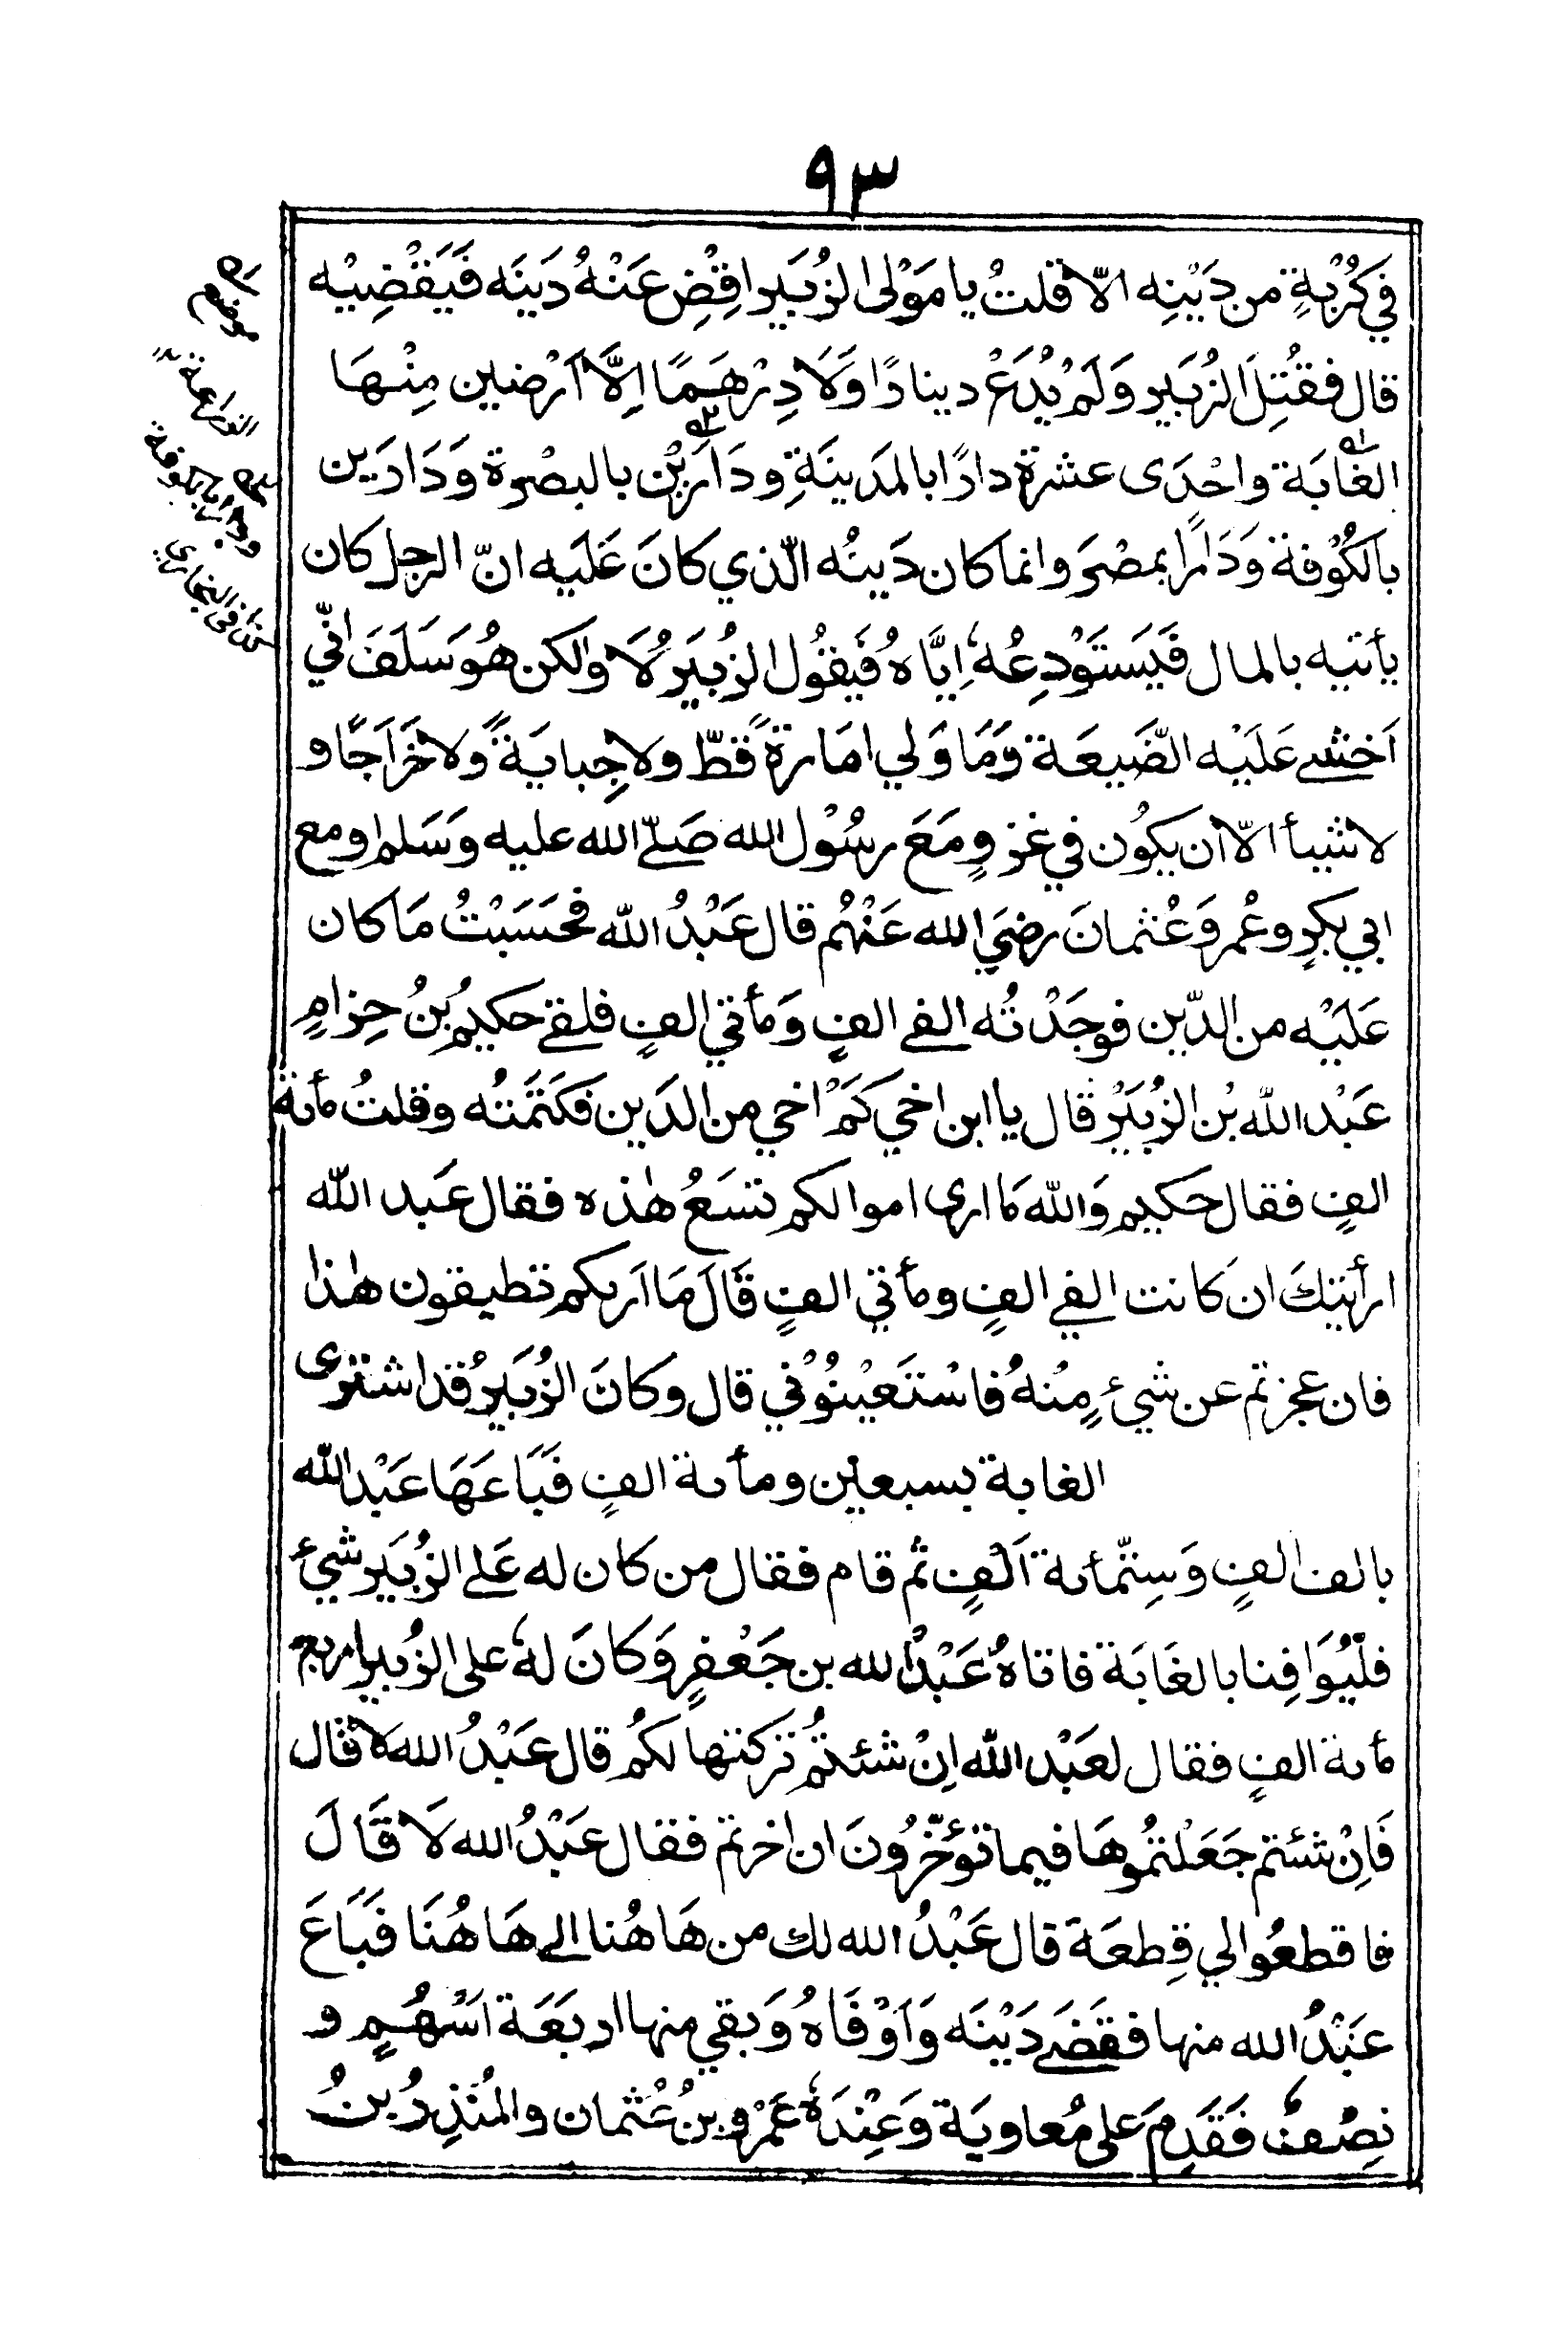 ٩٣
في كُرْبةٍ من دَيْنِه الّا قلتُ يا مَوْلى الزُبَير اقِضِ عَنْهُ دَينَه فَيَقْضِيْه
قال فقُتِلَ الزُبَير وَلَمْ يُدَعْ دينارًا وَّلَا دِرْهَمًا اِلَّا اَرْضين مِنْهَا
الغابَة واحْدَى عشرة دارًا بالمَدينَةِ ودَارَيْن بالبصْرة وَدَارَين
بالكُوْفة وَدَارًا بمصْرَ وانما كان دَينُه الّذي كانَ عَلَيه انّ الرجل كان
يأتيه بالمال فَيَستَوْدِعُهٗ اِيَّاهُ فَيَقُول الزُبَيرُ لَا ولٰكن هُوَ سَلَفَ انّي
اَخشے عَلَيْه الضَّيعَة وَمَا وَلي امَارةً قطّ ولا جِبايَةً وَّلا خَرَاجًا و
لا شيأ الّا ان يكوُن في غزوٍ مَعَ رسُوْل الله صَلّے الله عليه وَسَلم او مع
ابي بكرٍ وعُمر وَعُثمانَ رضَي الله عَنْهُم قال عَبْدُ الله فحَسَبْتُ مَا كان
عَلَيْه من الدّين فوجَدْتُه الفے الفٍ وَمأتي الفٍ فلقے حكيمُ بنُ حِزامٍ
عَبْد الله بْن الزُبَيْر قال يا ابن اخي كَمْ اخي من الدَين فكَتَمَتُه وقلتُ مأىة
الفٍ فقال حكيم وَالله مَا ارى اموالكم تسَعُ هٰذه فقال عَبد الله
ارأيتكَ ان كانت الفے الفٍ ومأتي الفٍ قَالَ مَا اَربكم تطيقون هٰذا
فان عجزتم عن شيءٍ مِنْهُ فاسْتَعيْنوُنْي قال وكانَ الزُبَيرُ قد اشترى
الغابة بسبعين ومأىة الفٍ فَبَاعَهَا عَبْد الله
بالف الفٍ وَسِتّمأىة اَلْفٍ ثم قام فقال من كان له عَلے الزُبَير شيءٌ
فلْيُوَافِنا بالغَابَة فاتاهُ عَبْدُ الله بن جَعْفرٍ وَكانَ لهٗ على الزُبير اربع
مأىة الفٍ فقال لعَبْد الله اِنْ شئتُم تركتها لكُم قال عَبْدُ الله لا قال
فَاِنْ شئتم جَعَلْتمُوهَا فيما تؤخّرُونَ ان اخرتم فقال عَبْدُ الله لَا قَالَ
فاقطعُوا لي قِطعَة قال عَبْدُ الله لك من هَاهُنا الے هَاهُنَا فَبَاعَ
عَبْدُ الله منها فقضَے دَيْنَه وَاَوْفَاهُ وَبقي منها اربَعَة اَسْهُمٍ و
نِصْفٌ فَقَدِمَ على مُعاويَة وَعِنْدَهٗ عَمْرو بنُ عُثمان والمُنذِرُ بنُ